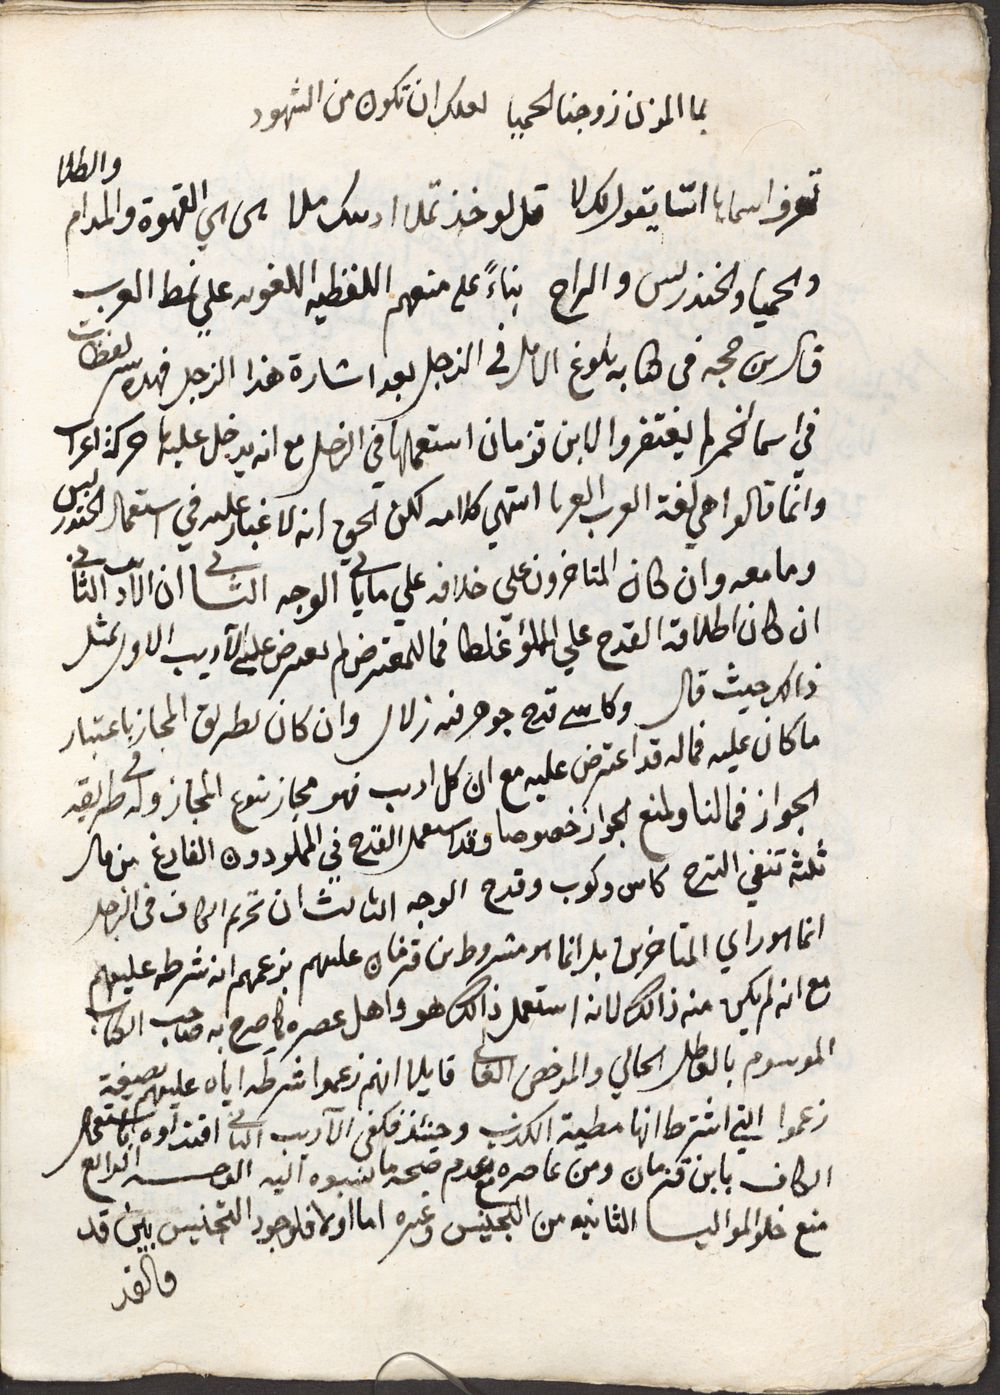 بما المزن زوجنا الحميا لعلك ان تكون من الشهود
والطلا
تعرف اسمايا انتا يقول لك لا قل لو خذ تملا هي القهوة والمدام
والحميا والخندريس والراح بناءً على منعهم اللفظيه اللغويه علي نمط العرب
قال بن حجه في كتابه بلوغ الامل في الزجل بعد اشارة هذا الزجل فهذه لفظات
في اسما الخمر لم يغتفروا لابن قزمان استعمالها في الزجل مع انه يدخل عليها حركة اعراب
وانما قالوا هي لغة العرب العربا انتهي كلامه لكن الحق انه لا غبار عليه في استعمال الخندريس
وما معه وان كان المتاخرون علي خلافه علي ما ياتي الوجه الثاني ان الاديب الثاني
ان كان اطلاقة القدح علي المملؤ غلطا فما للمعترض لم يعترض علي الاديب الاول بمثل
ذالك حيث قال وكاسي قدح جوهر فيه زلال وان كان بطريق المجاز باعتبار
ما كان عليه فماله قد اعترض عليه مع ان كل اديب فهو مجاز بنوع المجاز وله في طريقه
الجواز فمالنا ولمنع الجواز خصوصا وقد استعمل القدح في المملو دون الفارغ من قال
ثلثه تنفي الترح كاس وكوب وقدح الوجه الثالث ان تحريم الكاف في الزجل
انما هو راي المتاخرين بل انما هو مشروط بن قزمان عليهم بزعمهم انه شرطه عليهم
مع انه لم يكن منه ذالك لانه استعمل ذالك هو واهل عصره كما صرح به صاحب الكتاب
الموسوم بالعاطل الحالي والمرخص الغالي قايلا انهم زعموا شرطه اياه عليهم بصيغة
زعموا التي اشترط انها مطية الكذب وحينئذ فكفي الاديب الثاني اقتداوه باستعمال
الكاف بابن قزمان ومن عاصره مع عدم صحة ما نسبوه اليه الوجه الرابع
منع خلو المواليا الثانيه من التجنيس وغيره اما اولا فلوجود التجنيس بين قد
والقد